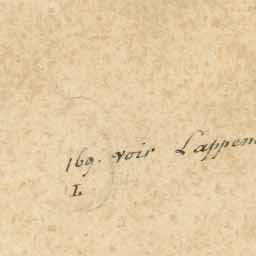 169. voir Lappen
L